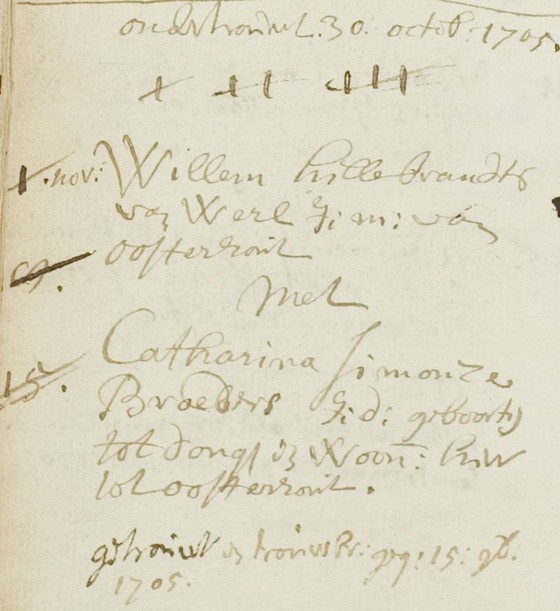 ondertrouwt. 30. octob: 1705.
1. nov: Willem hillebrandts
van Werl J: m: van
8. oosterhout
Met
Catharina Simonze
15. Broeders J: d: geboortig
tot dongen en Woon:
tot oosterhout.
getrouwt en geg: 15: 9b.
1705.